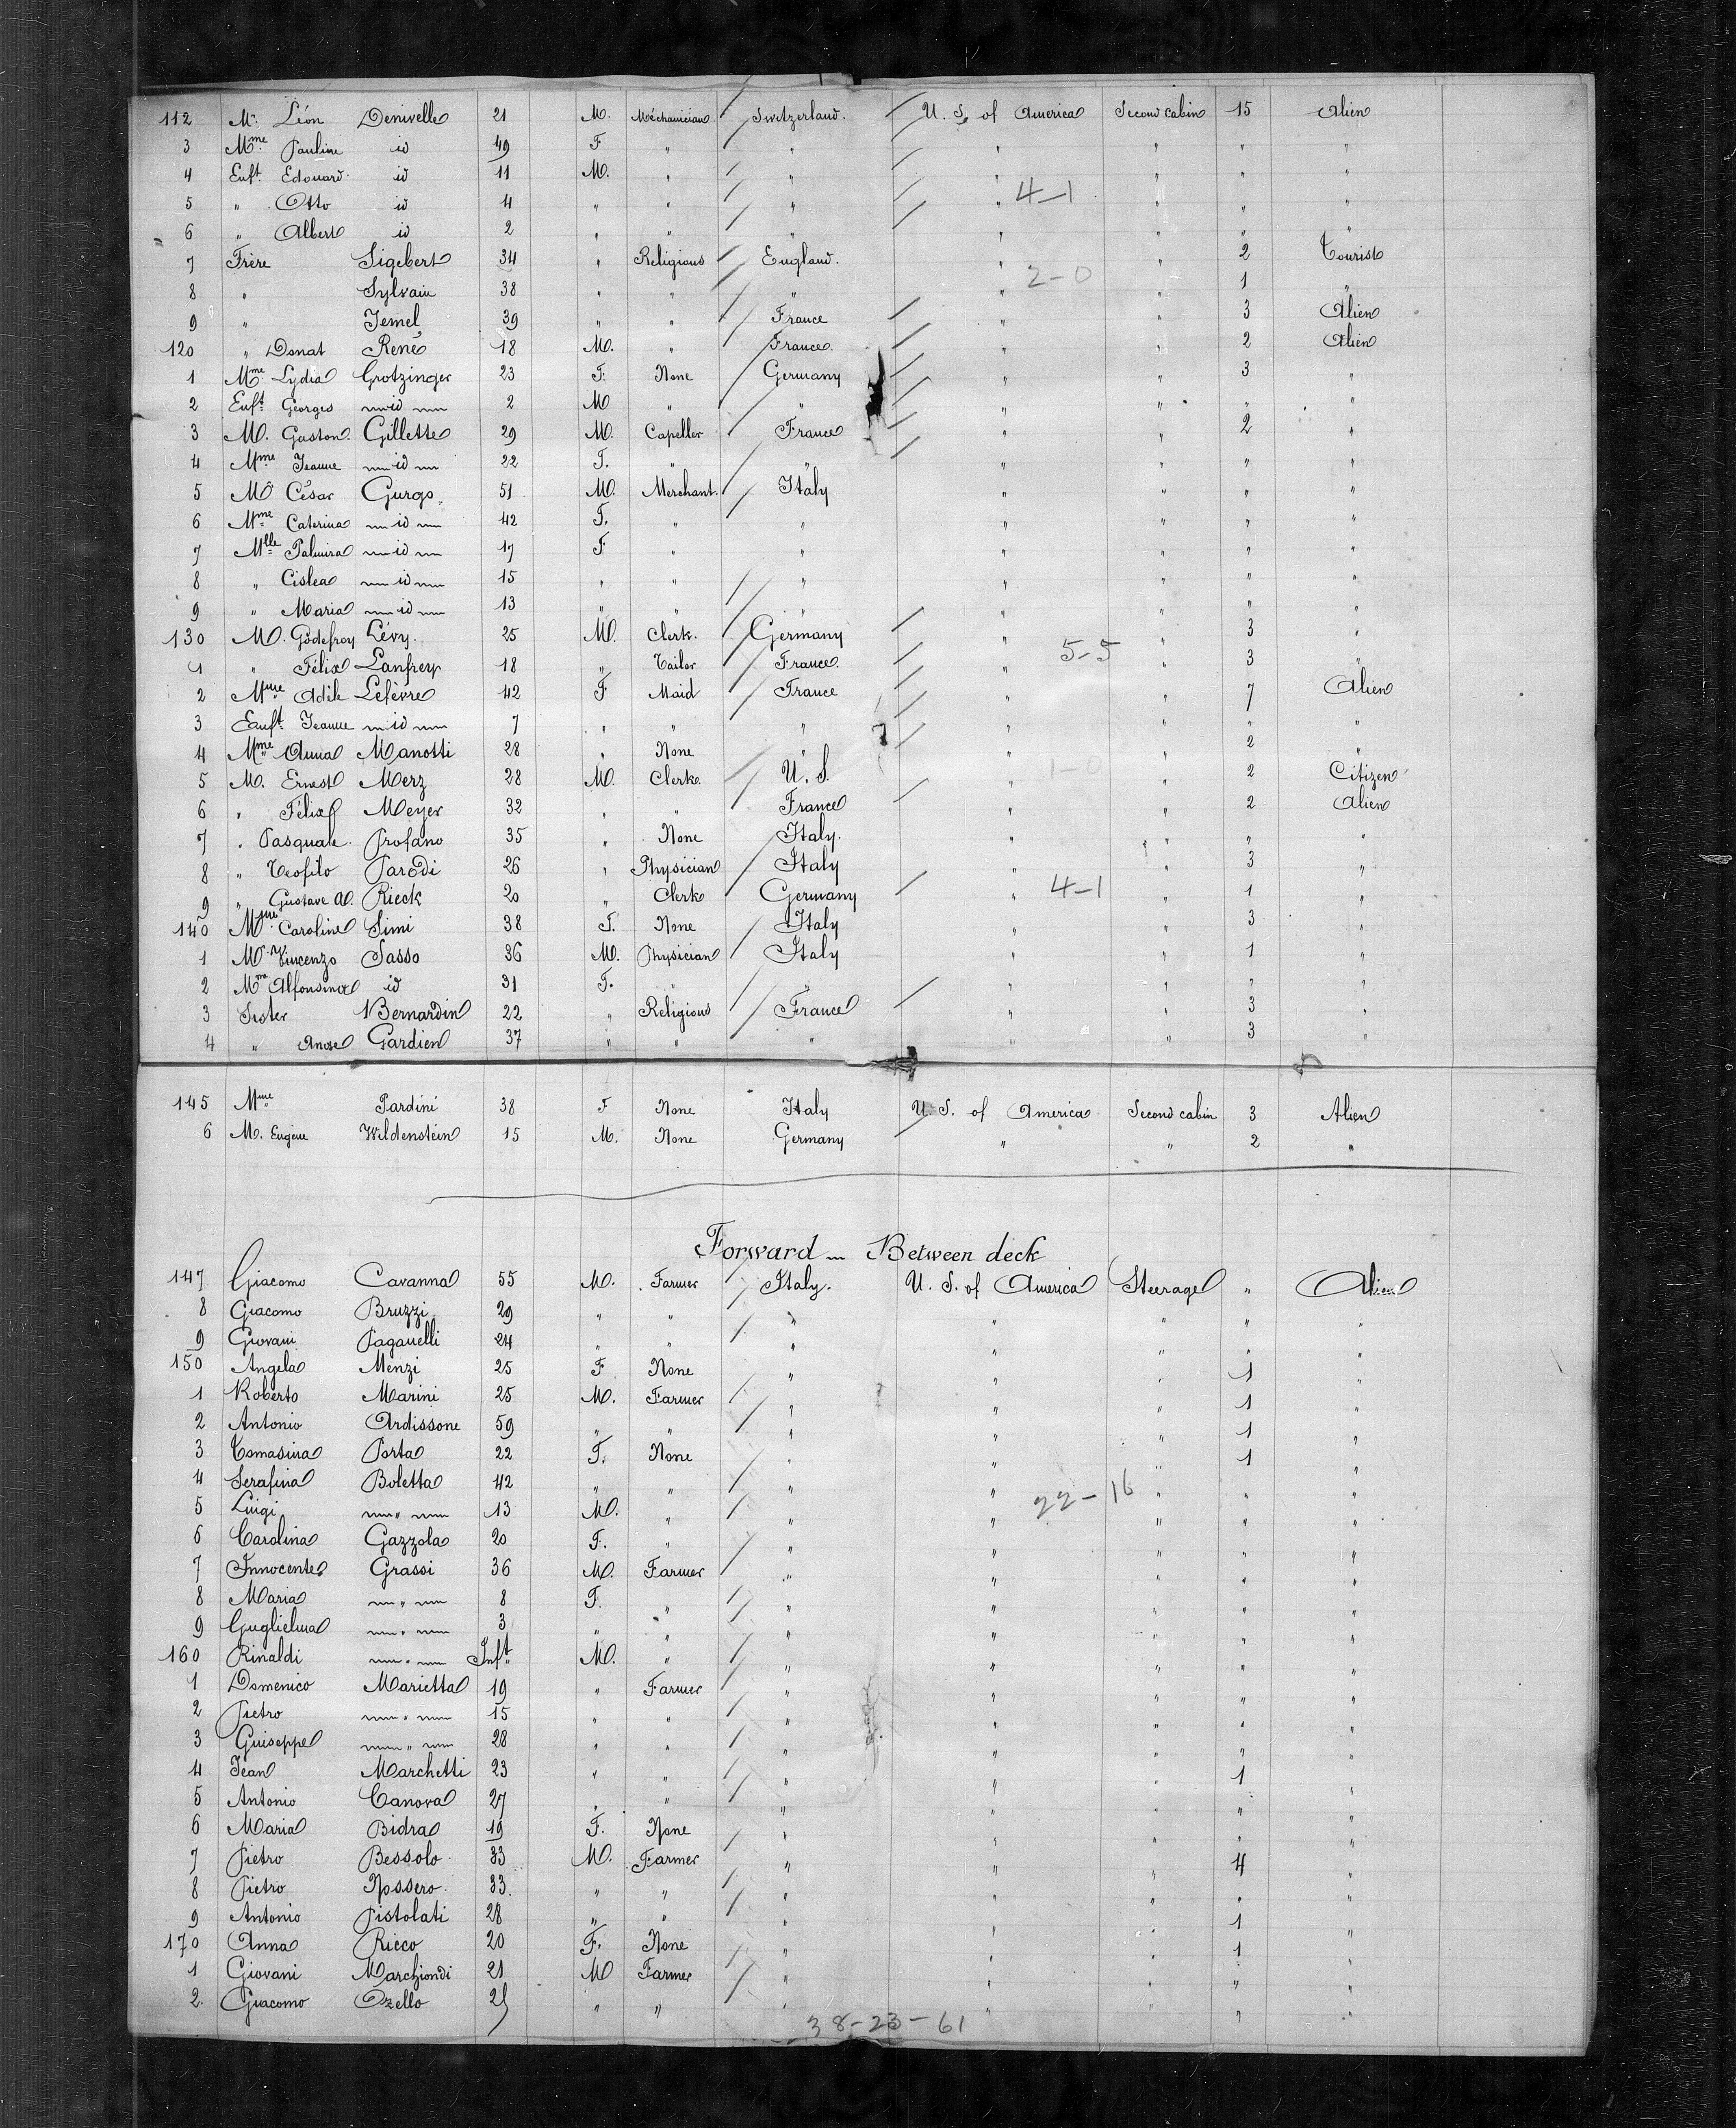 112 M. Léon Denivelle 21 M. Méchanician Switzerland. U. S. of America Second cabin 15 Alien
3 Mme Pauline id 49 F " " " " " "
4 Enft. Edouard id 11 M. " " " " " "
5 " Otto id 4 " " " " 4-1 " " "
6 " Albert id 2 " " " " " " "
7 Frère Sigebert 34 " Religious England. " " 2 Tourist
8 " Sylvain 38 " " " " 2-0 " 1 "
9 " Jemel 39 " " France " " 3 Alien
120 " Donat René 18 M. " France. " " 2 Alien
1 Mme Lydia Grotzinger 23 F. None Germany " " 3 "
2 Enft Georges id 2 M " " " " " "
3 M. Gaston Gillette 29 M. Capeller France " " 2 "
4 Mme Jeanne id 22 F. " " " " " "
5 M. César Gurgo 51 M. Merchant. Italy " " " "
6 Mme Caterina id 42 F. " " " " " "
7 Mlle Palmira id 17 F " " " " " "
8 " Cislea id 15 " " " " " " "
9 " Maria id 13 " " " " " " "
130 M. Godefroy Lévy. 25 M. Clerk. Germany " " 3 "
1 " Félix Lanfrey 18 " Tailor France. " 5-5 " 3 "
2 Mme Adèle Lefèvre 42 F Maid France " " 7 Alien
3 Enft. Jeanne id 7 " " " " " " "
4 Mme Anna Manotti 28 " None " " " 2 "
5 M. Ernest Merz 28 M. Clerk. U. S. " 1-0 " 2 Citizen
6 " Félix Meyer 32 " " France " " 2 Alien
7 " Pasquale Profano 35 " None Italy. " " " "
8 " Teofilo Parodi 26 " Physician Italy " " 3 "
9 " Gustave A. Rieck 20 " Clerk Germany " 4-1 " 1 "
140 Mme Caroline Simi 38 F. None Italy " " 3 "
1 M. Vincenzo Sasso 36 M. Physician Italy " " 1 "
2 Mme Alfonsina id 31 F. " " " " " "
3 Sister Bernardin 22 " Religious France " " 3 "
4 " Anose Gardien 37 " " " " " 3 "
145 Mme Pardini 38 F None Italy U. S. of America Second cabin 3 Alien
6 M. Eugène Wildenstein 15 M. None Germany " " 2 "
Forward Between deck
147 Giacomo Cavanna 55 M. Farmer Italy. U. S. of America Steerage " Alien
8 Giacomo Bruzzi 29 " " " " " " "
9 Giovani Paganelli 24 " " " " " " "
150 Angela Menzi 25 F None " " " 1 "
1 Roberto Marini 25 M. Farmer " " " 1 "
2 Antonio Ardissone 59 " " " " " 1 "
3 Tomasina Porta 22 F. None " " " 1 "
4 Serafina Boletta 42 " " " " " " "
5 Luigi " 13 M. " " " 22-16 " " "
6 Carolina Gazzola 20 F. " " " " " "
7 Innocente Grassi 36 M. Farmer " " " " "
8 Maria " 8 F. " " " " " "
9 Guglielma " 3 " " " " " " "
160 Rinaldi " Inft M. " " " " " "
1 Domenico Marietta 19 " Farmer " " " " "
2 Pietro " 15 " " " " " " "
3 Guiseppe " 28 " " " " " " "
4 Jean Marchetti 23 " " " " " 1 "
5 Antonio Canova 27 " " " " " " "
6 Maria Bidra 19 F. None " " " " "
7 Pietro Bessolo 33 M. Farmer " " " 4 "
8 Pietro Rossero 33. " " " " " " "
9 Antonio Pistolati 28 " " " " " 1 "
170 Anna Ricco 20 F. None " " " 1 "
1 Giovani Marchiondi 21 M Farmer " " " " "
2. Giacomo Ozello 25 " " " " " " "
38-23-61